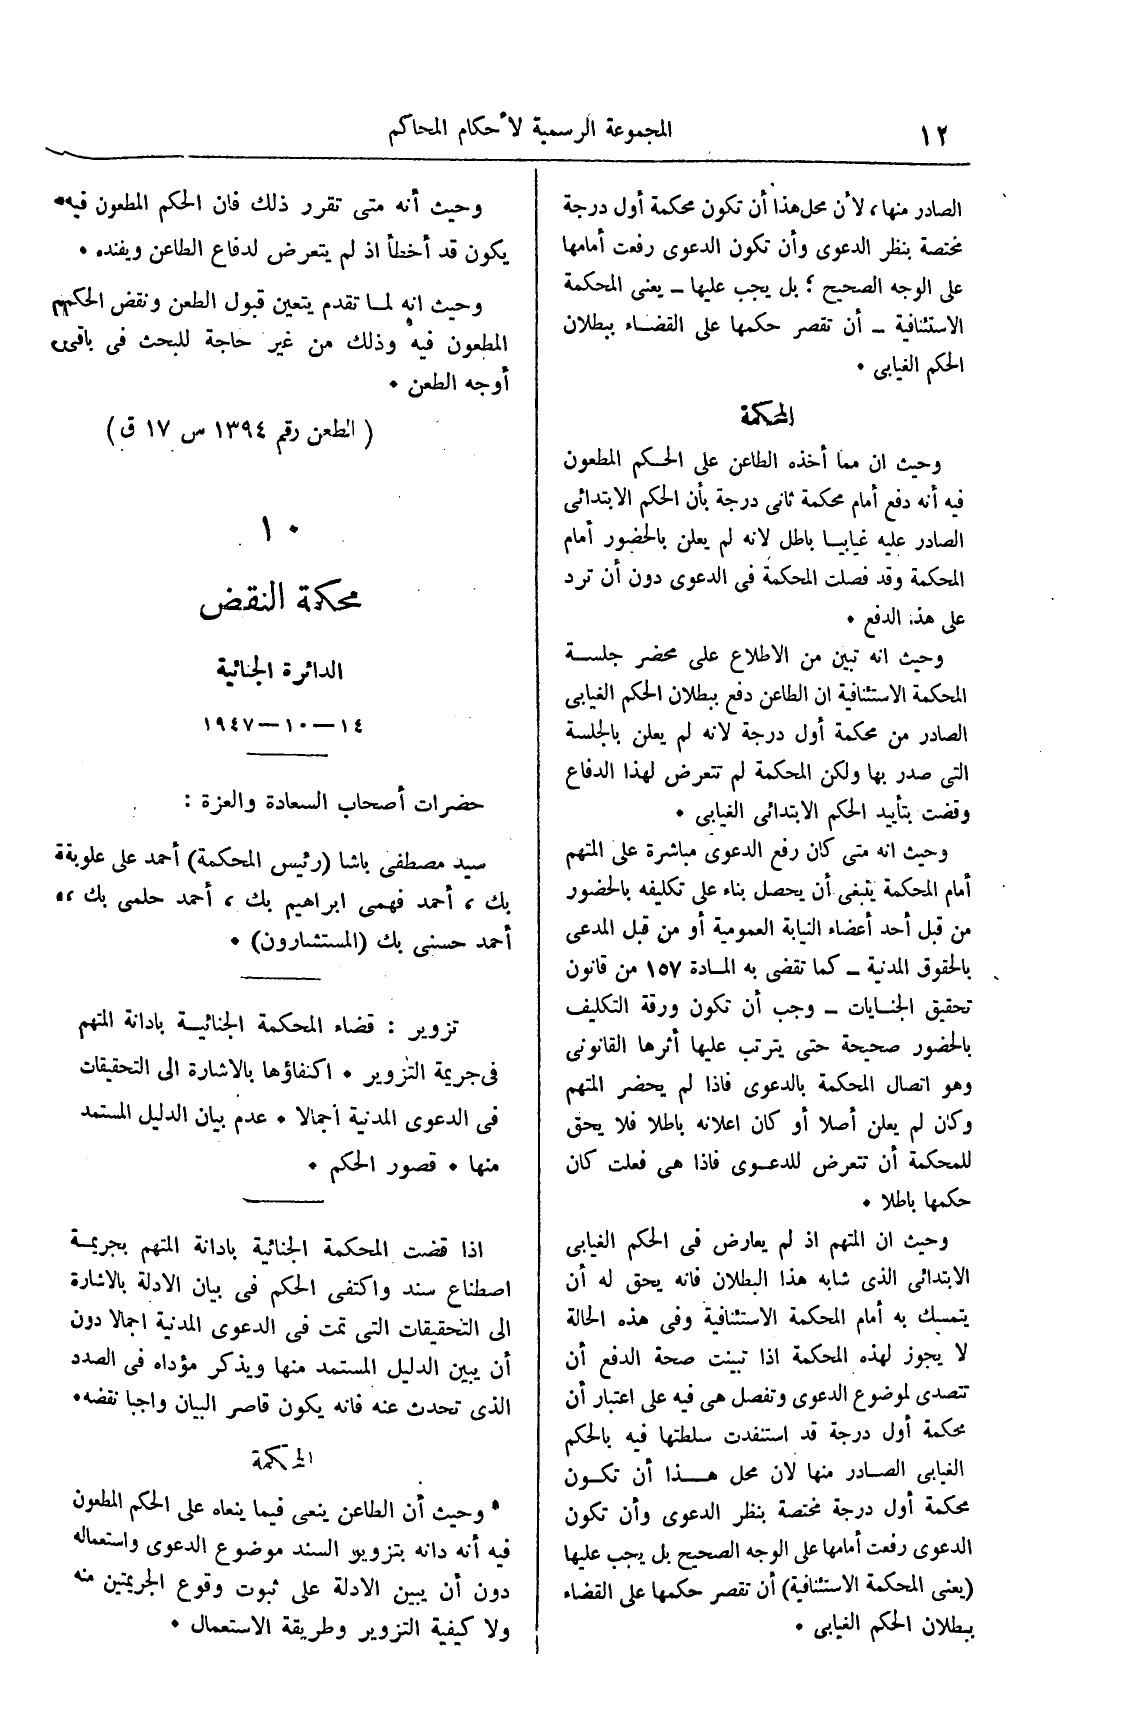 ١٢
المجموعة الرسمية لأحكام المحاكم
الصادر منها، لأن محل هذا أن تكون محكمة أول درجة
مختصة بنظر الدعوى وأن تكون الدعوى رفعت أمامها
على الوجه الصحيح ؛ بل يجب عليها ـ يعنى المحكمة
الاستئنافية ـ أن تقصر حكمها على القضاء ببطلان
الحكم الغيابى .
المحكمة
وحيث ان مما أخذه الطاعن على الحكم المطعون
فيه أنه دفع أمام محكمة ثانى درجة بأن الحكم الابتدائى
الصادر عليه غيابيا باطل لانه لم يعلن بالحضور أمام
المحكمة وقد فصلت المحكمة فى الدعوى دون أن ترد
على هذا الدفع .
وحيث انه تبين من الاطلاع على محضر جلسة
المحكمة الاستئنافية ان الطاعن دفع ببطلان الحكم الغيابى
الصادر من محكمة أول درجة لانه لم يعلن بالجلسة
التى صدر بها ولكن المحكمة لم تتعرض لهذا الدفاع
وقضت بتأييد الحكم الابتدائى الغيابى .
وحيث انه متى كان رفع الدعوى مباشرة على المتهم
أمام المحكمة ينبغى أن يحصل بناء على تكليفه بالحضور
من قبل أحد أعضاء النيابة العمومية أو من قبل المدعى
بالحقوق المدنية ـ كما تقضى به المادة ١٥٧ من قانون
تحقيق الجنايات ـ وجب أن تكون ورقة التكليف
بالحضور صحيحة حتى يترتب عليها أثرها القانونى
وهو اتصال المحكمة بالدعوى فاذا لم يحضر المتهم
وكان لم يعلن أصلا أو كان اعلانه باطلا فلا يحق
للمحكمة أن تتعرض للدعوى فاذا هى فعلت كان
حكمها باطلا .
وحيث ان المتهم اذ لم يعارض فى الحكم الغيابى
الابتدائى الذى شابه هذا البطلان فانه يحق له أن
يتمسك به أمام المحكمة الاستئنافية وفى هذه الحالة
لا يجوز لهذه المحكمة اذا تبينت صحة الدفع أن
تتصدى لموضوع الدعوى وتفصل هى فيه على اعتبار أن
محكمة أول درجة قد استنفدت سلطتها فيه بالحكم
الغيابى الصادر منها لان محل هذا أن تكون
محكمة أول درجة مختصة بنظر الدعوى وأن تكون
الدعوى رفعت أمامها على الوجه الصحيح بل يجب عليها
(يعنى المحكمة الاستئنافية) أن تقصر حكمها على القضاء
ببطلان الحكم الغيابى .
وحيث أنه متى تقرر ذلك فان الحكم المطعون فيه
يكون قد أخطأ اذ لم يتعرض لدفاع الطاعن ويفنده .
وحيث انه لما تقدم يتعين قبول الطعن ونقض الحكم
المطعون فيه وذلك من غير حاجة للبحث فى باقى
أوجه الطعن .
( الطعن رقم ١٣٩٤ س ١٧ ق )
١٠
محكمة النقض
الدائرة الجنائية
١٤—١٠—١٩٤٧
حضرات أصحاب السعادة والعزة :
سيد مصطفى باشا (رئيس المحكمة) أحمد على علوبة
بك ، أحمد فهمى ابراهيم بك ، أحمد حلمى بك ،
أحمد حسنى بك (المستشارون) .
تزوير : قضاء المحكمة الجنائية بادانة المتهم
فى جريمة التزوير . اكتفاؤها بالاشارة الى التحقيقات
فى الدعوى المدنية اجمالا . عدم بيان الدليل المستمد
منها . قصور الحكم .
اذا قضت المحكمة الجنائية بادانة المتهم بجريمة
اصطناع سند واكتفى الحكم فى بيان الادلة بالاشارة
الى التحقيقات التى تمت فى الدعوى المدنية اجمالا دون
أن يبين الدليل المستمد منها ويذكر مؤداه فى الصدد
الذى تحدث عنه فانه يكون قاصر البيان واجبا نقضه.
المحكمة
وحيث أن الطاعن ينعى فيما ينعاه على الحكم المطعون
فيه أنه دانه بتزوير السند موضوع الدعوى واستعماله
دون أن يبين الادلة على ثبوت وقوع الجريمتين منه
ولا كيفية التزوير وطريقة الاستعمال .